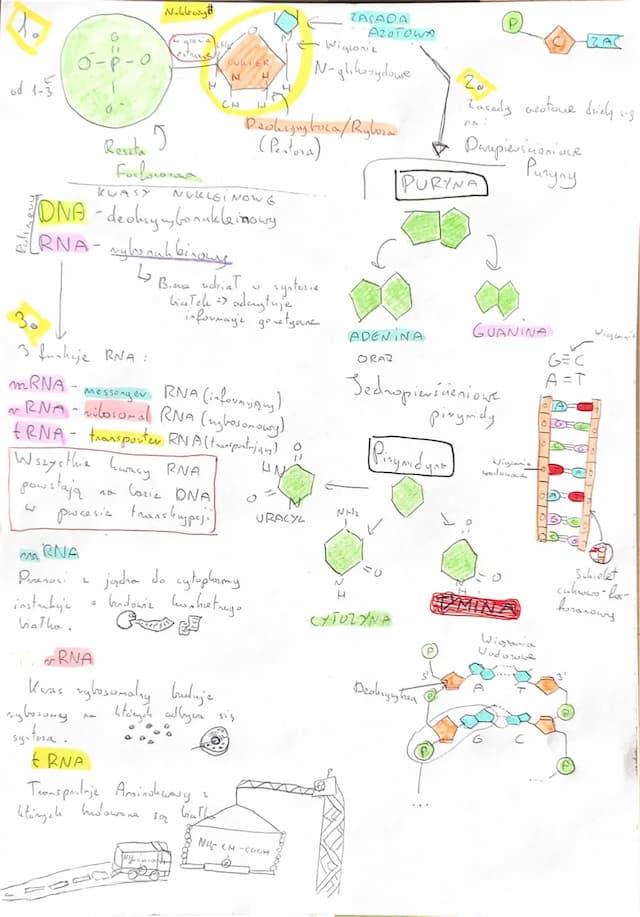 1.
Nukleozyd
G
O⁻-P-O
O
od 1-3
wiązanie estrowe
CH₂
O
CUKIER
N
H H
H H
CH H
Reszta
Fosforanowa
Deoksyryboza/Ryboza
(Pentoza)
ZASADA
AZOTOWA
Wiązanie
N-glikozydowe
P
C
ZAS
2.
Zasady azotowe dzielą się
na:
Dwupierścieniowe
Puryny
PURYNA
ADENINA
GUANINA
ORAZ
Jednopierścieniowe
pirymidy
Pirymidyna
O
HN
O=
N
URACYL
NH₂
N
=O
N
H
CYTOZYNA
O
=O
N
H
TYMINA
Wiązanie
G≡C
A=T
A
T
C G
G C
T A
A T
G C
C G
Wiązanie
wodorowe
Szkielet
cukrowo-fos-
foranowy
KWASY NUKLEINOWE
Polimery
DNA - deoksyrybonukleinowy
RNA - rybonukleinowy
↳ Bierze udział w syntezie
białek => odczytuje
informacje genetyczne
3.
3 funkcje RNA:
mRNA - messenger RNA (informacyjny)
rRNA - ribosomal RNA (rybosomowy)
tRNA - transporter RNA (transportujący)
Wszystkie kwasy RNA
powstają na bazie DNA
w procesie transkrypcji
mRNA
Przenosi z jądra do cytoplazmy
instrukcje o budowie konkretnego
białka.
rRNA
Kwas rybosomalny buduje
rybosomy na których odbywa się
synteza.
tRNA
Transportuje Aminokwasy z
których budowane są białka
NH₂-CH-COOH
Wiązania
Wodorowe
P
5'
3'
Deoksyryboza
A
T
P
P
G
C
P
P
...
...